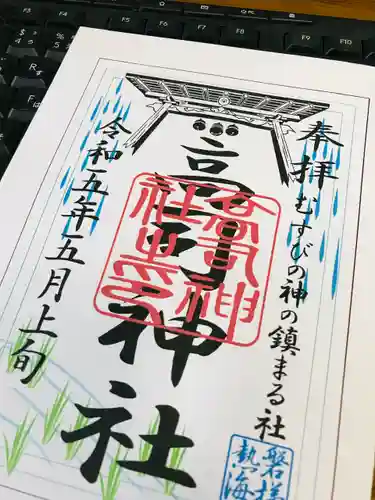 奉拝 むすびの神の鎮まる社
高司神社
高司神
社之印
令和五年五月上旬
磐梯
熱海
F3 F4 F5 F6 F7 F8 F9 F10